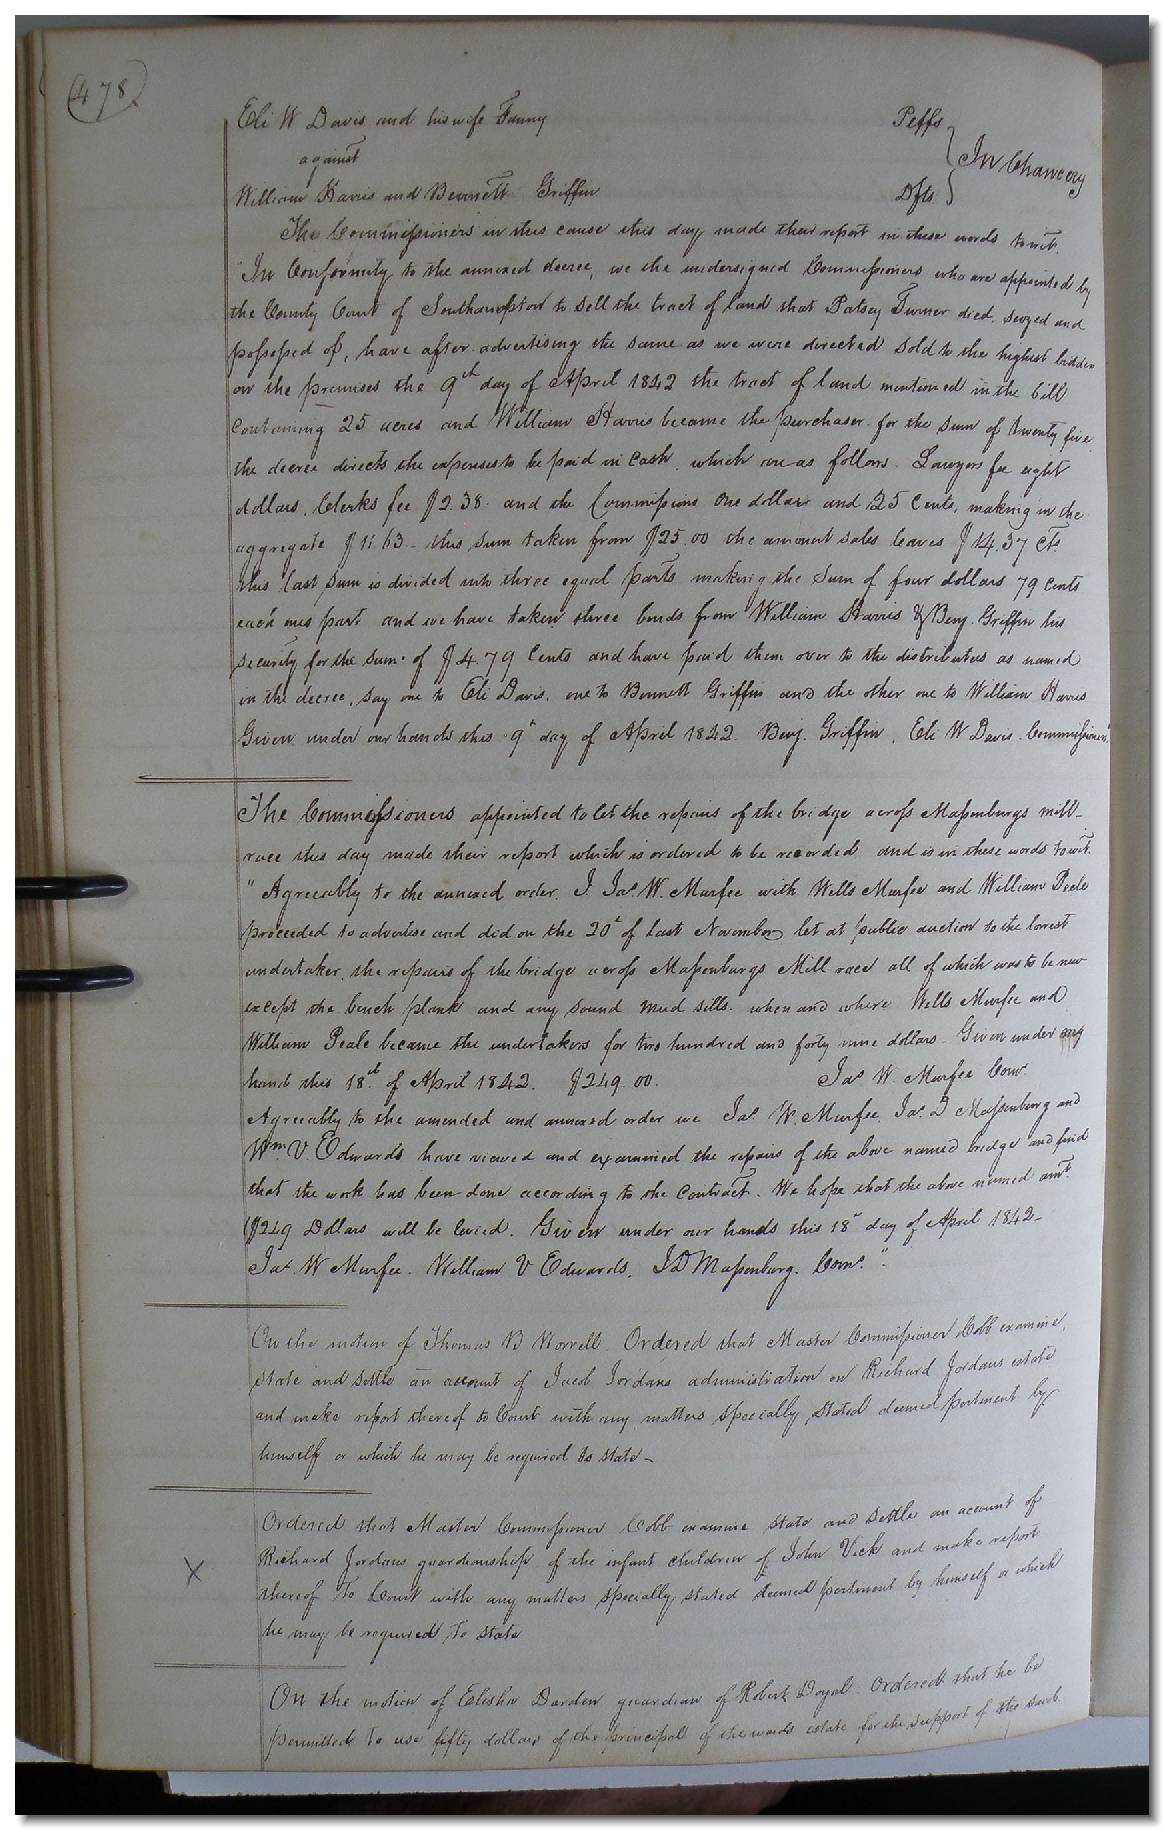 478
Eli W Davis and his wife Fanny Peffs
against
William Harris and Bennett Griffin Dfts } In Chancery
The Commissioners in this cause this day made their report in these words towit.
"In Conformity to the annexed decree, we the undersigned Commissioners who are appointed by
the County Court of Southampton to sell the tract of land that Patsey Turner died, seized and
possessed of, have after advertising the same as we were directed sold to the highest bidder
on the premises the 9th day of April 1842 the tract of land mentioned in the bill
containing 25 acres and William Harris became the purchaser for the sum of twenty five
the decree directs the expenses to be paid in cash, which are as follows. Lawyers fee eight
dollars, Clerks fee $2.38 and the Commissions One dollar and 25 Cents, making in the
aggregate $11.63 - this sum taken from $25.00 the amount sales leaves $14.37 cts
this last sum is divided into three equal parts making the sum of four dollars 79 cents
each ones part and we have taken three bonds from William Harris & Benj. Griffin his
security for the sum of $4.79 Cents and have paid them over to the distributees as named
in the decree, say one to Eli Davis, one to Bennett Griffin and the other one to William Harris
Given under our hands this 9th day of April 1842. Benj. Griffin, Eli W Davis. Commissioners"
The Commissioners appointed to let the repairs of the bridge across Massenburgs mill-
race this day made their report which is ordered to be recorded and is in these words towit.
"Agreeably to the annexed order. I. Jas. W. Murfee with Wells Murfee and William Peele
proceeded to advertise and did on the 20th of last November let at public auction to the lowest
undertaker, the repairs of the bridge across Massenburgs Mill race all of which was to be new
except the bench plank and any sound mud sills. when and where Wells Murfee and
William Peale became the undertakers for two hundred and forty nine dollars. Given under my
hand this 18th of April 1842. $249.00. Jas. W. Murfee Comr.
Agreeably to the amended and annexed order we Jas. W. Murfee, Jas. D Massenburg and
Wm. V. Edwards have viewed and examined the repairs of the above named bridge and find
that the work has been done according to the contract. We hope that the above named amt.
($249 Dollars will be levied. Given under our hands this 18th day of April 1842-
Jas. W Murfee. William V Edwards, J D Massenburg. Coms."
On the motion of Thomas B Worrell. Ordered that Master Commissioner Cobb examine,
state and settle an account of Jacob Jordans administration on Richard Jordans estate
and make report thereof to Court with any matters specially stated deemed pertinent by
himself or which he may be required to state-
Ordered that Master Commissioner Cobb examine state and settle an account of
X Richard Jordans guardianship of the infant children of John Vick and make report
thereof to Court with any matters specially stated deemed pertinent by himself or which
he may be required to state
On the motion of Elisha Darden guardian of Robert Doyal. Ordered that he be
permitted to use fifty dollars of the principal of the wards estate for the support of the